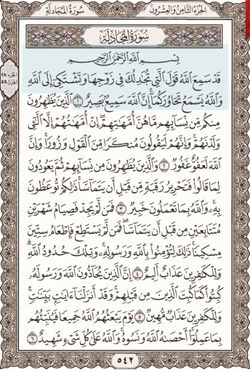 الجزء الثامن والعشرون
سورة المجادلة
سورة المجادلة
بسم الله الرحمن الرحيم
قد سمع الله قول التي تجادلك في زوجها وتشتكي إلى الله
والله يسمع تحاوركما إن الله سميع بصير ١ الذين يظاهرون
منكم من نسائهم ما هن أمهاتهم إن أمهاتهم إلا الـٰٔي
ولدنهم وإنهم ليقولون منكرا من القول وزورا وإن
الله لعفو غفور ٢ والذين يظاهرون من نسائهم ثم يعودون
لما قالوا فتحرير رقبة من قبل أن يتماسا ذلكم توعظون
به والله بما تعملون خبير ٣ فمن لم يجد فصيام شهرين
متتابعين من قبل أن يتماسا فمن لم يستطع فإطعام ستين
مسكينا ذلك لتؤمنوا بالله ورسوله وتلك حدود الله
وللكافرين عذاب أليم ٤ إن الذين يحادون الله ورسوله
كبتوا كما كبت الذين من قبلهم وقد أنزلنا آيات بينات
وللكافرين عذاب مهين ٥ يوم يبعثهم الله جميعا فينبئهم
بما عملوا أحصاه الله ونسوه والله على كل شيء شهيد ٦
٥٤٢